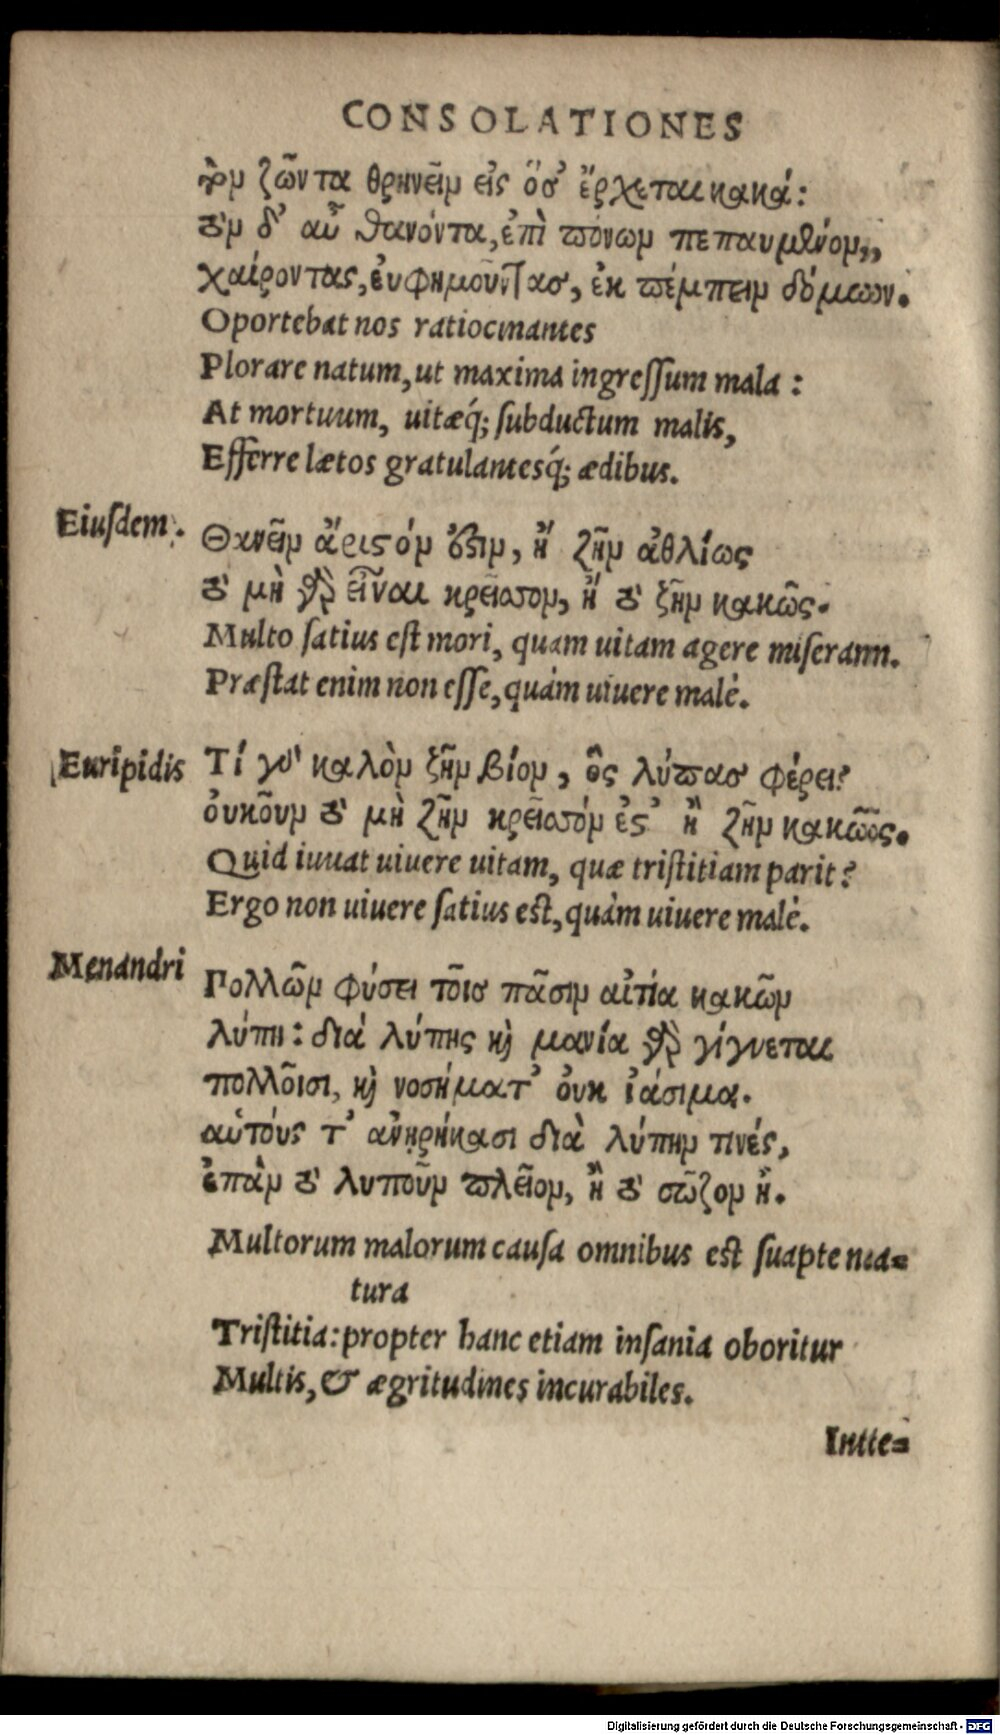 CONSOLATIONES
τὸν ζῶντα θρηνεῖν εἰς ὅσ' ἔρχεται κακά:
τὸν δ' αὖ θανόντα, ἐπὶ πόνων πεπαυμένον,,
χαίροντας, ἐυφημοῦντας, ἐκ πέμπειν δόμων.
Oportebat nos ratiocinantes
Plorare natum, ut maxima ingressum mala :
At mortuum, uitæq́; subductum malis,
Efferre lætos gratulantesq́; ædibus.
Eiusdem. Θανεῖν ἄριστόν ἐστιν, ἢ ζῆν ἀθλίως
τὸ μὴ γὰρ εἶναι κρεῖσσον, ἢ τὸ ζῆν κακῶς.
Multo satius est mori, quam uitam agere miseram.
Præstat enim non esse, quàm uiuere malè.
Euripidis Τί τὸ καλὸν ζῆν βίον, ὃς λύπας φέρει?
ὀυκοῦν τὸ μὴ ζῆν κρεῖσσόν ἐστ' ἢ ζῆν κακῶς.
Quid iuuat uiuere uitam, quæ tristitiam parit?
Ergo non uiuere satius est, quàm uiuere malè.
Menandri Πολλῶν φύσει τοῖς πᾶσιν αἰτία κακῶν
λύπη: διὰ λύπης καὶ μανία γὰρ γίγνεται
πολλοῖσι, καὶ νοσήματ' ὀυκ ἰάσιμα.
αὑτούς τ' ἀνῃρήκασι διὰ λύπην τινές,
ἐπὰν τὸ λυποῦν πλεῖον, ἢ τὸ σῶζον ᾖ.
Multorum malorum causa omnibus est suapte na=
tura
Tristitia: propter hanc etiam insania oboritur
Multis, & ægritudines incurabiles.
Intte=
Digitalisierung gefördert durch die Deutsche Forschungsgemeinschaft - DFG